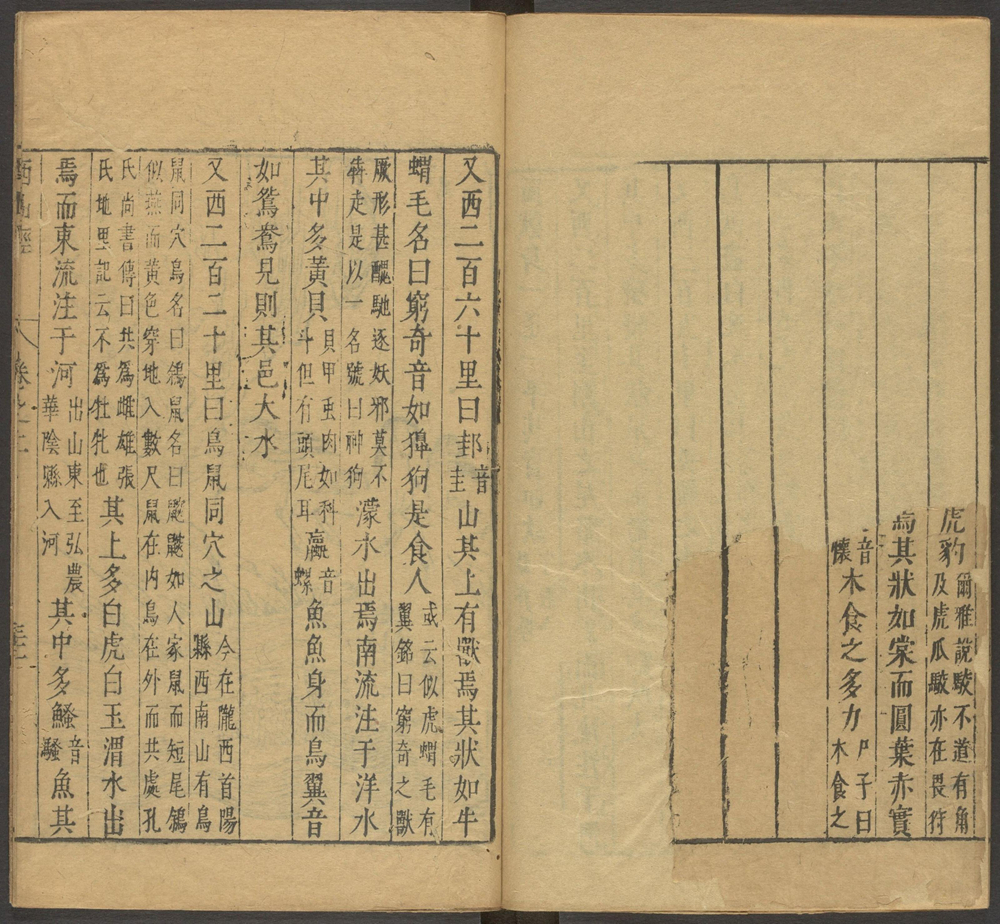 虎豹爾雅說駮不道有角及虎爪駮亦在畏狩
焉其狀如棠而圓葉赤實
音懷木食之多力尸子曰木食之
又西二百六十里曰邽音圭山其上有獸焉其狀如牛
蝟毛名曰窮奇音如獋狗是食人或云似虎蝟毛有翼銘曰窮奇之獸
厥形甚醜馳逐妖邪莫不犇走是以一名號曰神狗濛水出焉南流注于洋水
其中多黃貝貝甲虫肉如科斗但有頭尾耳蠃音螺魚魚身而鳥翼音
如鴛鴦見則其邑大水
又西二百二十里曰鳥鼠同穴之山今在隴西首陽縣西南山有鳥
鼠同穴鳥名曰鵌鼠名曰鼵鼵如人家鼠而短尾鵌似燕而黃色穿地入數尺鼠在內鳥在外而共處孔
氏尚書傳曰共爲雌雄張氏地里記云不爲牡牝也其上多白虎白玉渭水出
焉而東流注于河出山東至弘農華陰縣入河其中多鰠音騷魚其
西山經